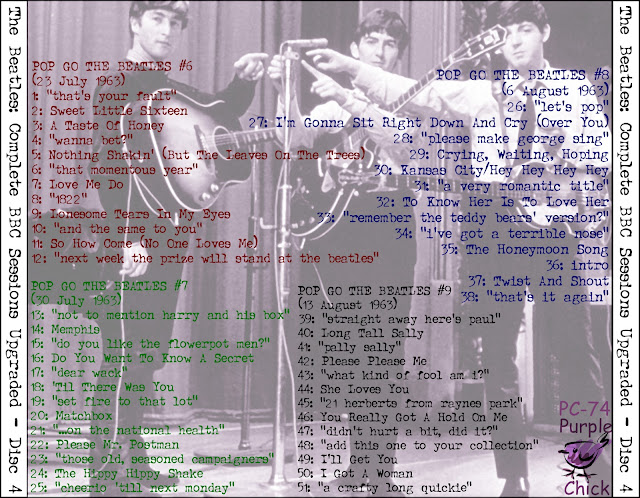 The Beatles: Complete BBC Sessions Upgraded - Disc 4
POP GO THE BEATLES #6
(23 July 1963)
1: "that's your fault"
2: Sweet Little Sixteen
3: A Taste Of Honey
4: "wanna bet?"
5: Nothing Shakin' (But The Leaves On The Trees)
6: "that momentous year"
7: Love Me Do
8: "1822"
9: Lonesome Tears In My Eyes
10: "and the same to you"
11: So How Come (No One Loves Me)
12: "next week the prize will stand at the beatles"
POP GO THE BEATLES #7
(30 July 1963)
13: "not to mention harry and his box"
14: Memphis
15: "do you like the flowerpot men?"
16: Do You Want To Know A Secret
17: "dear wack"
18: 'Til There Was You
19: "set fire to that lot"
20: Matchbox
21: "...on the national health"
22: Please Mr. Postman
23: "those old, seasoned campaigners"
24: The Hippy Hippy Shake
25: "cheerio 'till next monday"
POP GO THE BEATLES #8
(6 August 1963)
26: "let's pop"
27: I'm Gonna Sit Right Down And Cry (Over You)
28: "please make george sing"
29: Crying, Waiting, Hoping
30: Kansas City/Hey Hey Hey Hey
31: "a very romantic title"
32: To Know Her Is To Love Her
33: "remember the teddy bears' version?"
34: "i've got a terrible nose"
35: The Honeymoon Song
36: intro
37: Twist And Shout
38: "that's it again"
POP GO THE BEATLES #9
(13 August 1963)
39: "straight away here's paul"
40: Long Tall Sally
41: "pally sally"
42: Please Please Me
43: "what kind of fool am i?"
44: She Loves You
45: "21 herberts from raynes park"
46: You Really Got A Hold On Me
47: "didn't hurt a bit, did it?"
48: "add this one to your collection"
49: I'll Get You
50: I Got A Woman
51: "a crafty long quickie"
PC-74
Purple
Chick
The Beatles: Complete BBC Sessions Upgraded - Disc 4